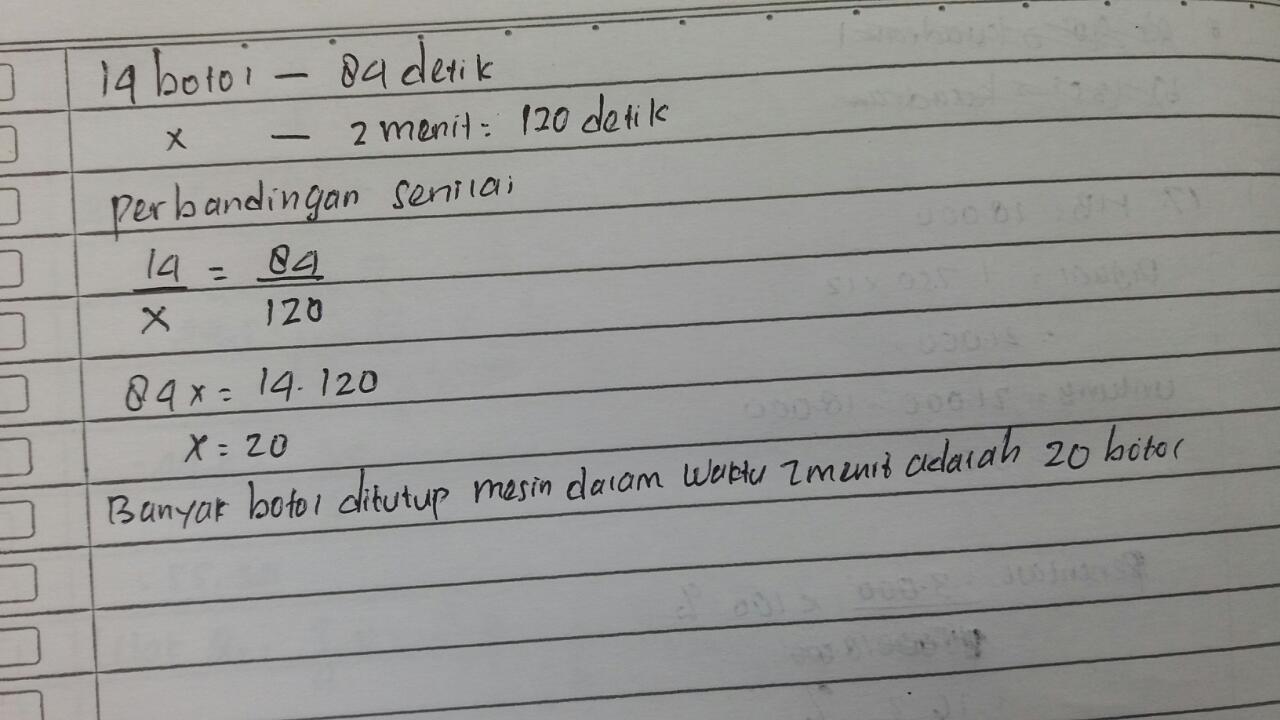 14 botol — 84 detik
x — 2 menit = 120 detik
Perbandingan senilai
14 = 84
x 120
84x = 14. 120
x = 20
Banyak botol ditutup mesin dalam waktu 2 menit adalah 20 botol